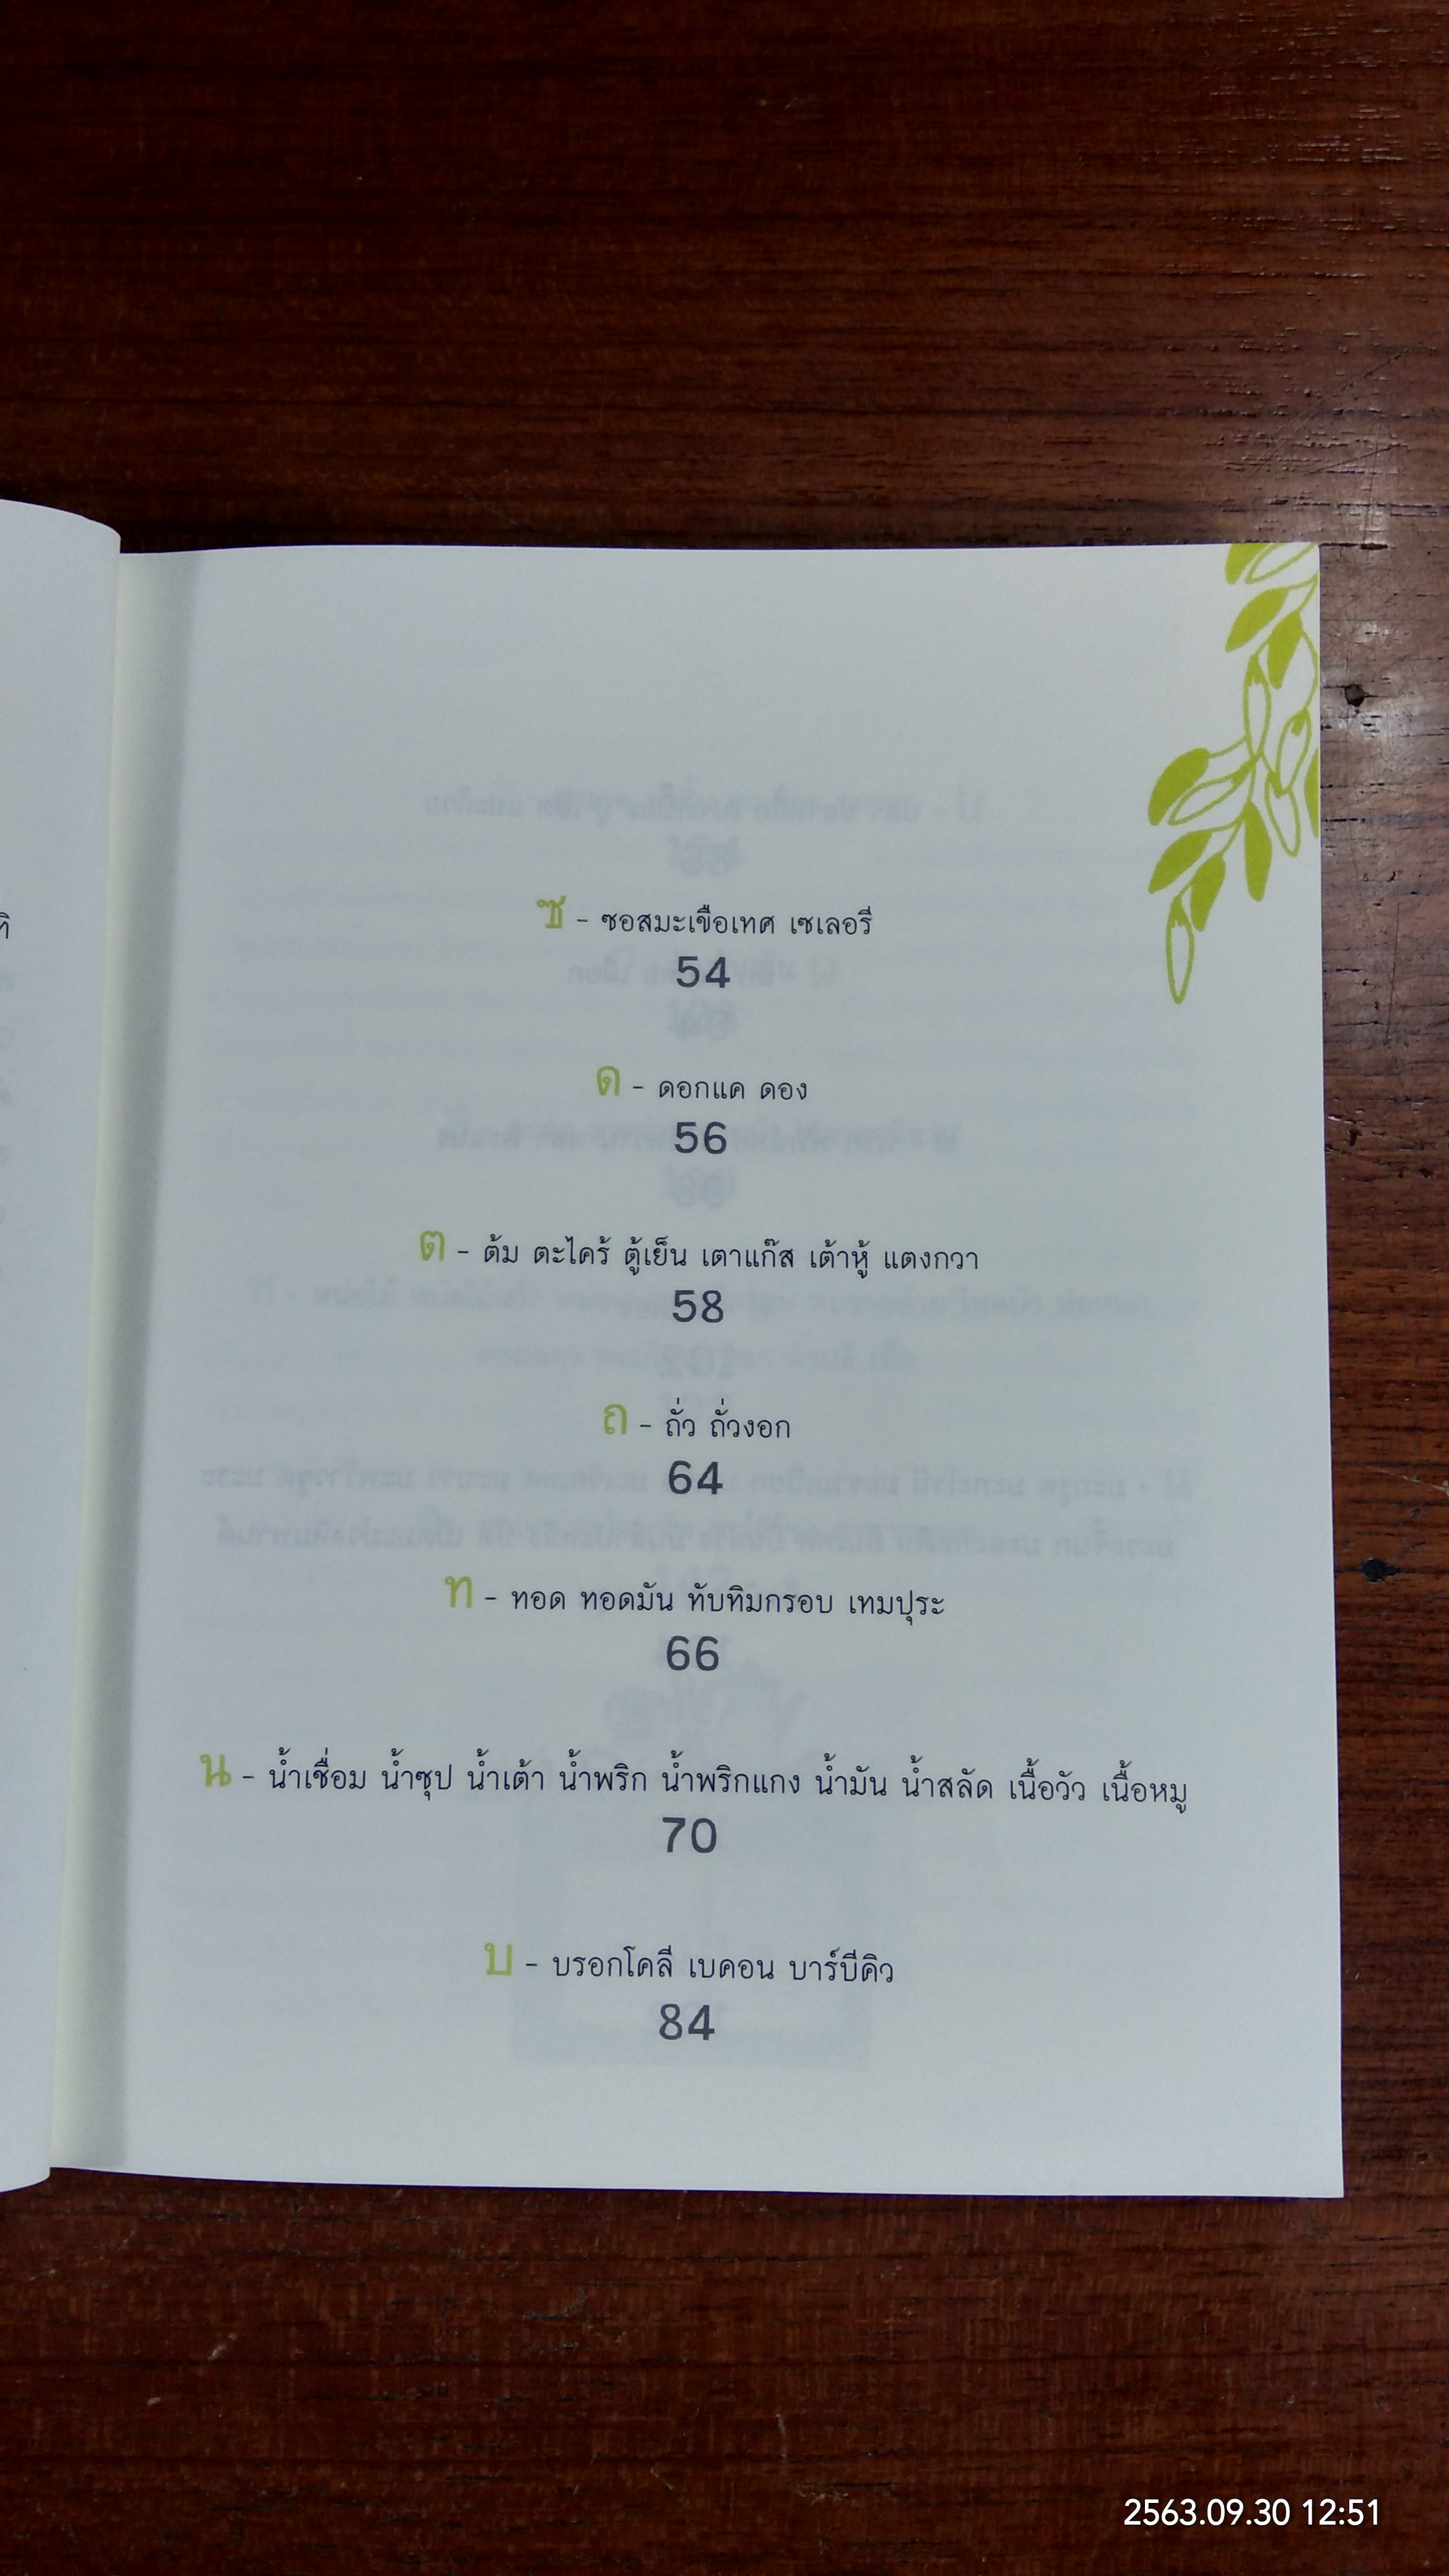 ซ - ซอสมะเขือเทศ เซเลอรี
54
ด - ดอกแค ดอง
56
ต - ต้ม ตะไคร้ ตู้เย็น เตาแก๊ส เต้าหู้ แตงกวา
58
ถ - ถั่ว ถั่วงอก
64
ท - ทอด ทอดมัน ทับทิมกรอบ เทมปุระ
66
น - น้ำเชื่อม น้ำซุป น้ำเต้า น้ำพริก น้ำพริกแกง น้ำมัน น้ำสลัด เนื้อวัว เนื้อหมู
70
บ - บรอกโคลี เบคอน บาร์บีคิว
84
2563.09.30 12:51